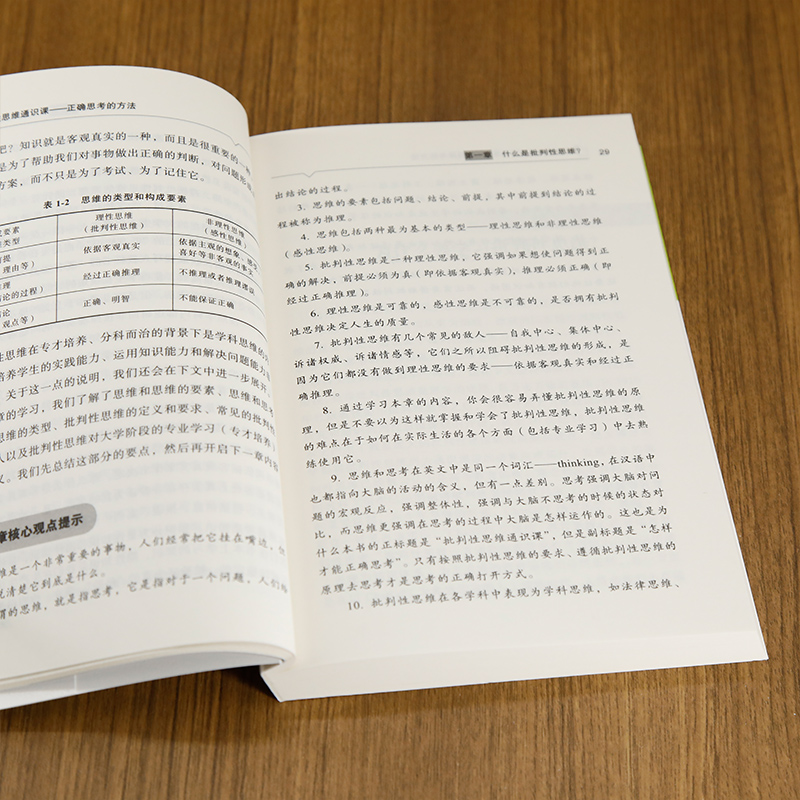 思维通识课——正确思考的方法
吧？知识就是客观真实的一种，而且是很重要的一种
是为了帮助我们对事物做出正确的判断，对问题形
方案，而不只是为了考试、为了记住它。
表 1-2 思维的类型和构成要素
要素 理性思维 非理性思维
类型 （批判性思维） （感性思维）
前提 依据客观真实 依据主观的想象、感受
理由等） 喜好等非客观的事实
推理 经过正确推理 不推理或者推理谬误
结论的过程）
结论 正确、明智 不能保证正确
观点等）
性思维在专才培养、分科而治的背景下是学科思维的
培养学生的实践能力、运用知识能力和解决问题能力
关于这一点的说明，我们还会在下文中进一步展开
章的学习，我们了解了思维和思维的要素、思维和思考
思维的类型、批判性思维的定义和要求、常见的批判性
人以及批判性思维对大学阶段的专业学习（专才培养）
义。我们先总结这部分的要点，然后再开启下一章内容
章核心观点提示
维是一个非常重要的事物，人们经常把它挂在嘴边，但
说清楚它到底是什么。
谓的思维，就是指思考，它是指对于一个问题，人们
第一章 什么是批判性思维？ 29
出结论的过程。
3. 思维的要素包括问题、结论、前提，其中前提到结论的过
程被称为推理。
4. 思维包括两种最为基本的类型——理性思维和非理性思维
（感性思维）。
5. 批判性思维是一种理性思维，它强调如果想使问题得到正
确的解决，前提必须为真（即依据客观真实），推理必须正确（即
经过正确推理）。
6. 理性思维是可靠的，感性思维是不可靠的，是否拥有批判
性思维决定人生的质量。
7. 批判性思维有几个常见的敌人——自我中心、集体中心、
诉诸权威、诉诸情感等，它们之所以阻碍批判性思维的形成，是
因为它们都没有做到理性思维的要求——依据客观真实和经过正
确推理。
8. 通过学习本章的内容，你会很容易弄懂批判性思维的原
理，但是不要以为这样就掌握和学会了批判性思维，批判性思维
的难点在于如何在实际生活的各个方面（包括专业学习）中去熟
练使用它。
9. 思维和思考在英文中是同一个词汇——thinking，在汉语中
也都指向大脑的活动的含义，但有一点差别。思考强调大脑对问
题的宏观反应，强调整体性，强调与大脑不思考的时候的状态对
比，而思维更强调在思考的过程中大脑是怎样运作的。这也是为
什么本书的正标题是“批判性思维通识课”，但是副标题是“怎样
才能正确思考”。只有按照批判性思维的要求、遵循批判性思维的
原理去思考才是思考的正确打开方式。
10. 批判性思维在各学科中表现为学科思维，如法律思维、